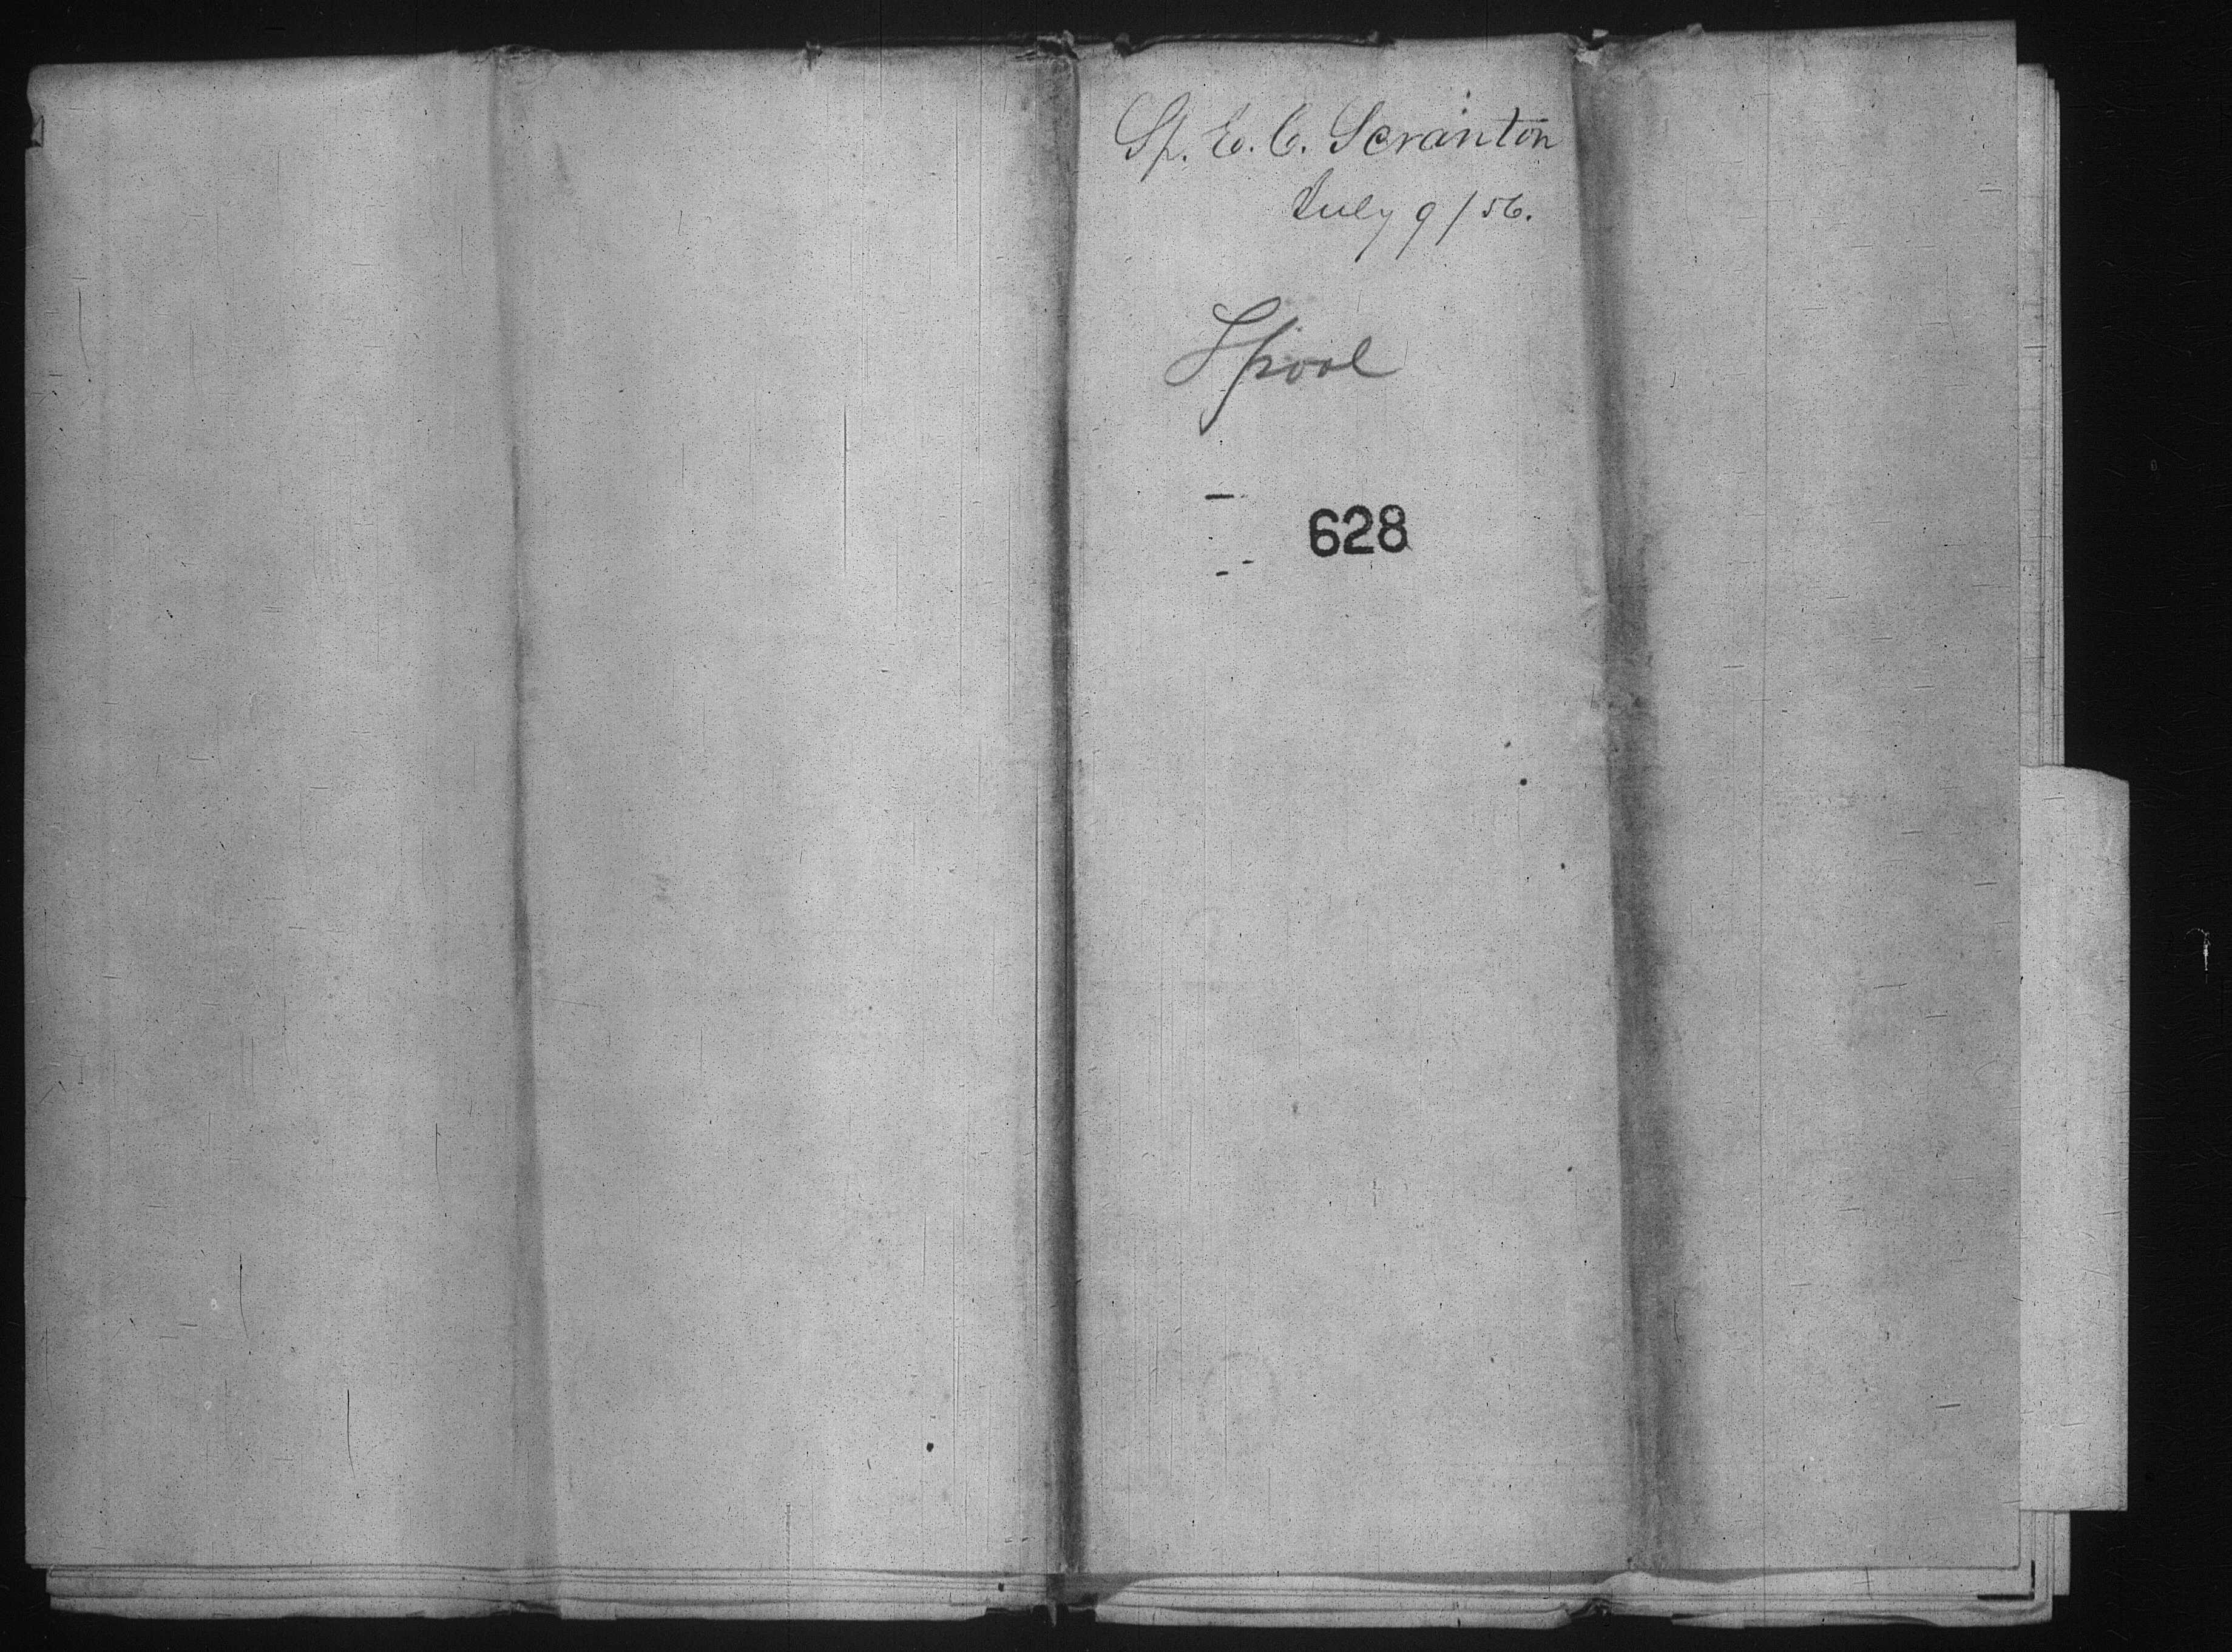 Sp. E. C. Scranton
July 9/56.
Spool
628